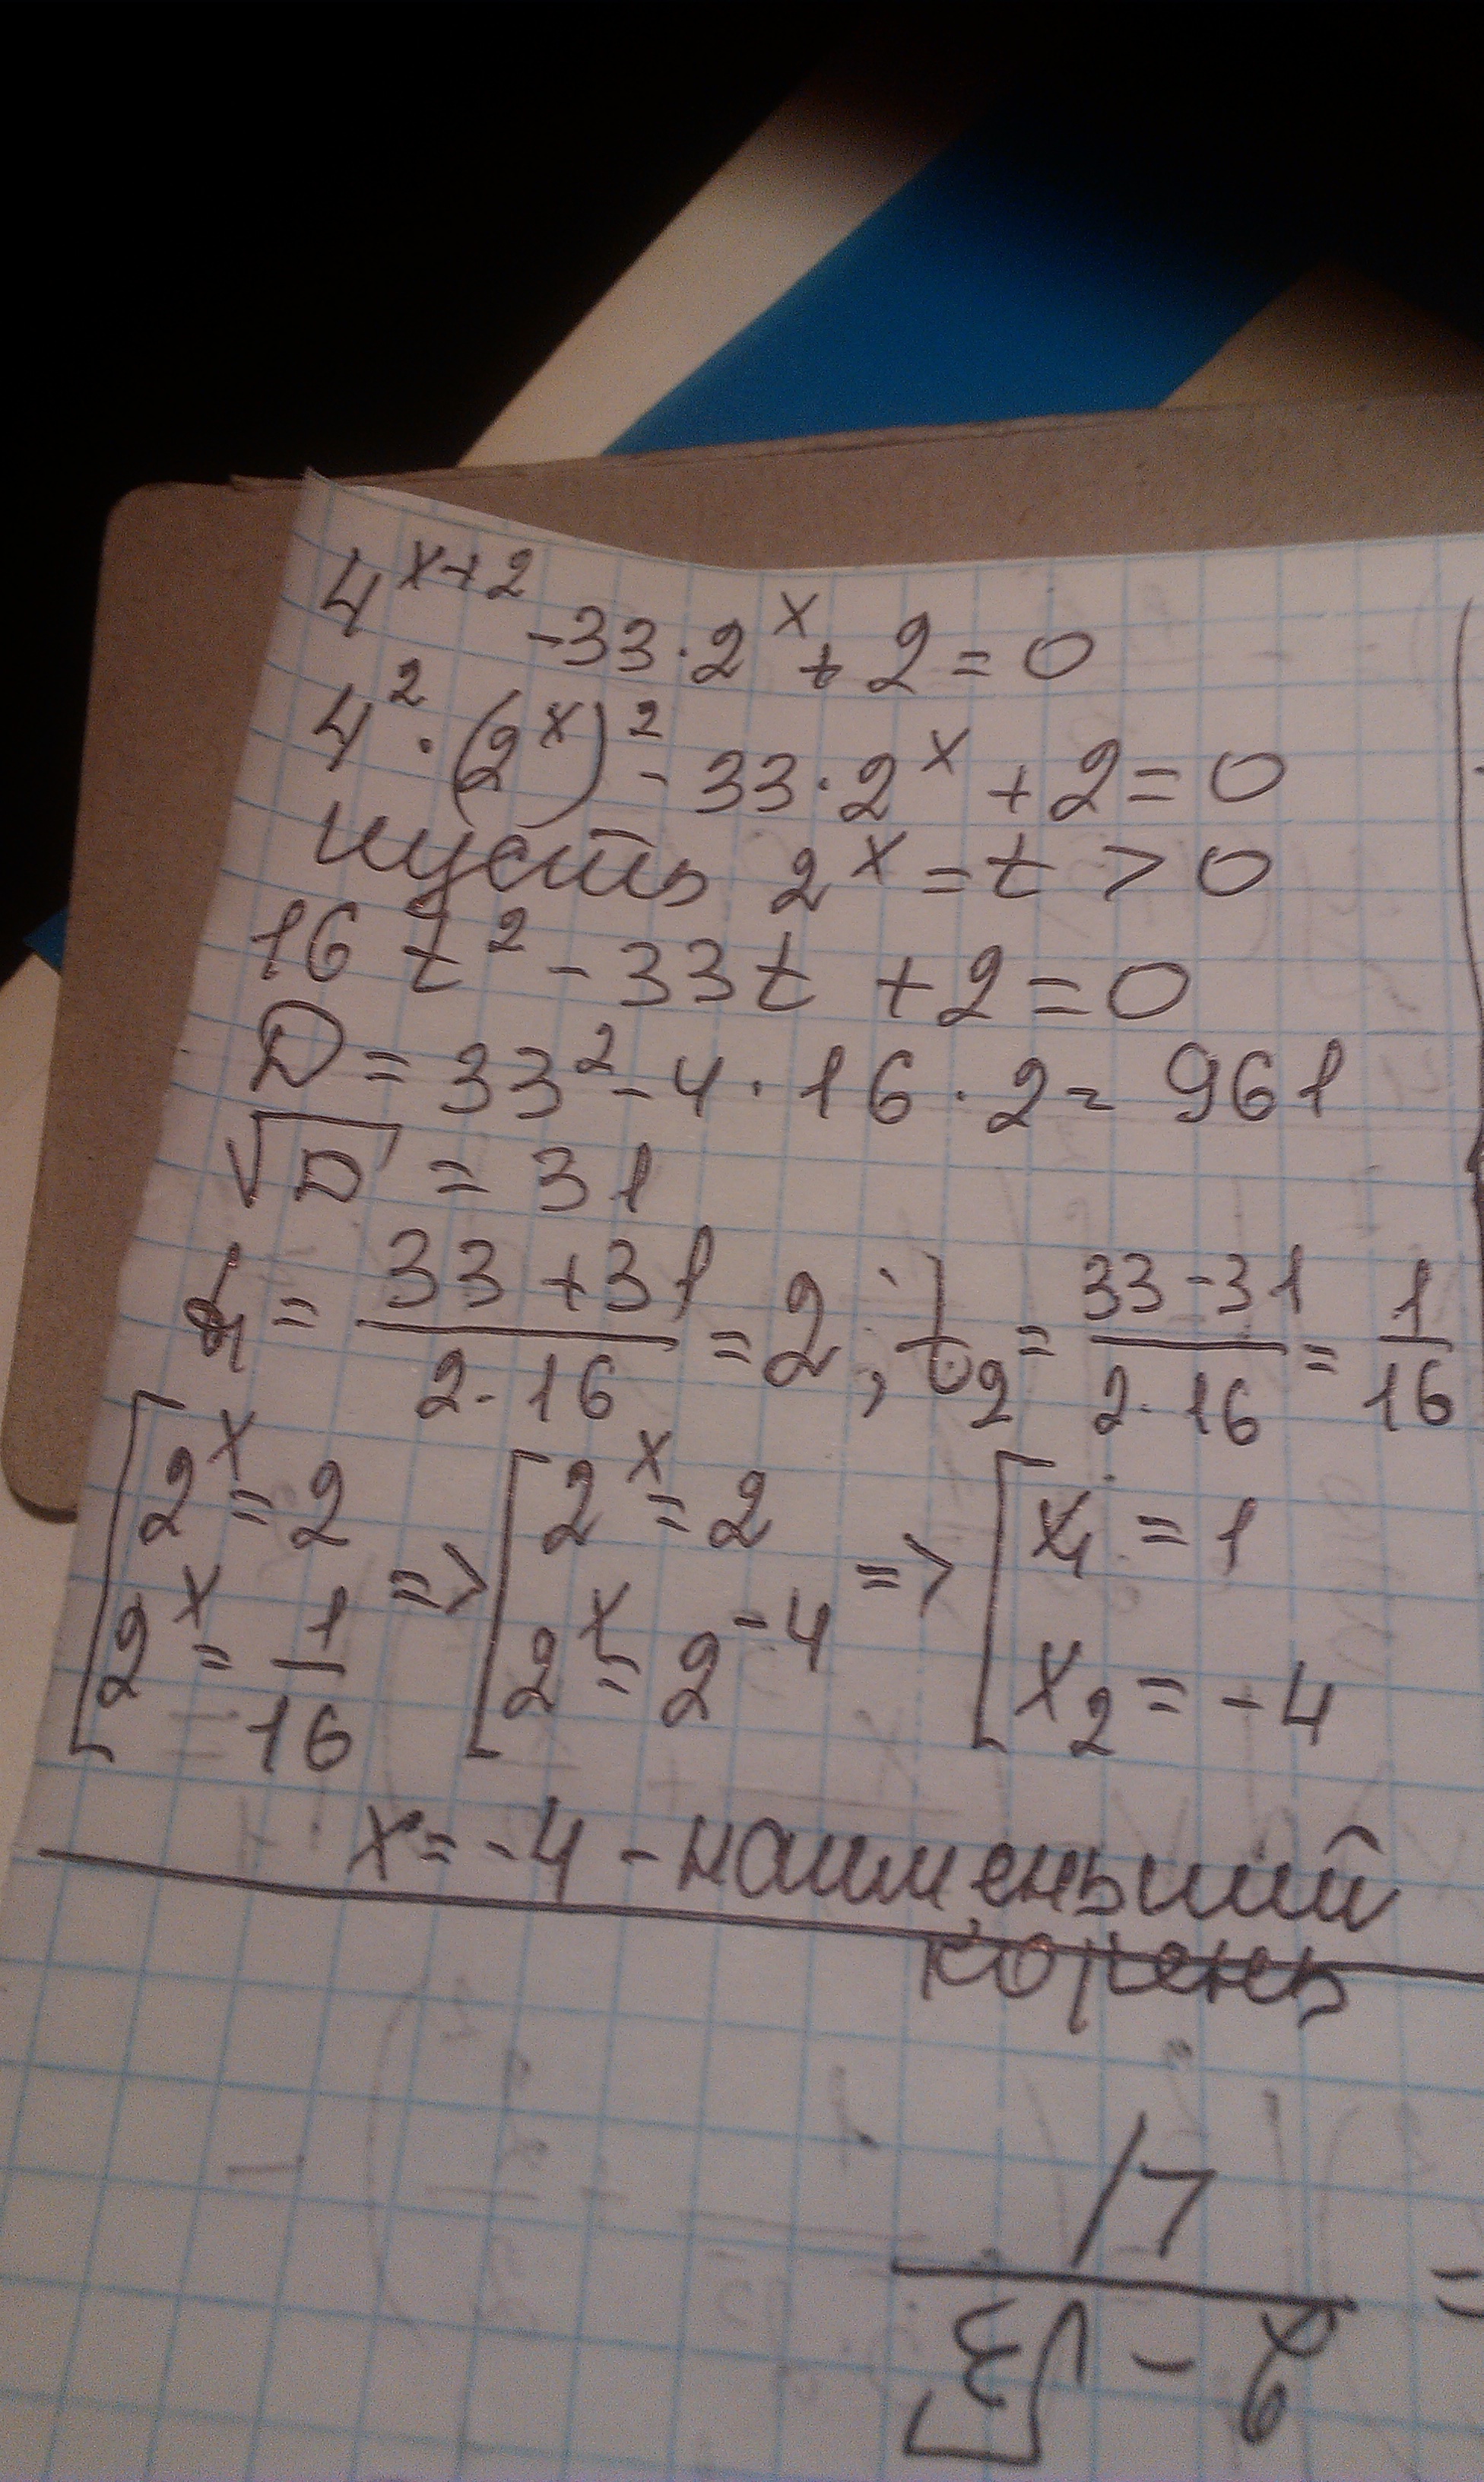 4^{x+2} -33·2^x + 2 = 0
4^2 · (2^x)^2 - 33·2^x + 2 = 0
пусть 2^x = t > 0
16 t^2 - 33t + 2 = 0
D = 33^2 - 4 · 16 · 2 = 961
√D = 31
t_1 = (33 + 31)/(2·16) = 2; t_2 = (33 - 31)/(2·16) = 1/16
[2^x = 2 => [2^x = 2 => [x_1 = 1
2^x = 1/16 2^x = 2^{-4} x_2 = -4
x = -4 - наименьший
корень